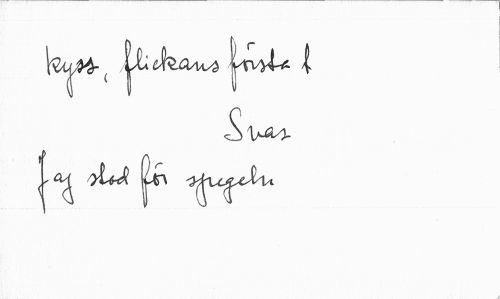 kyss, flickans första t
Svar
Jag stod för spegeln